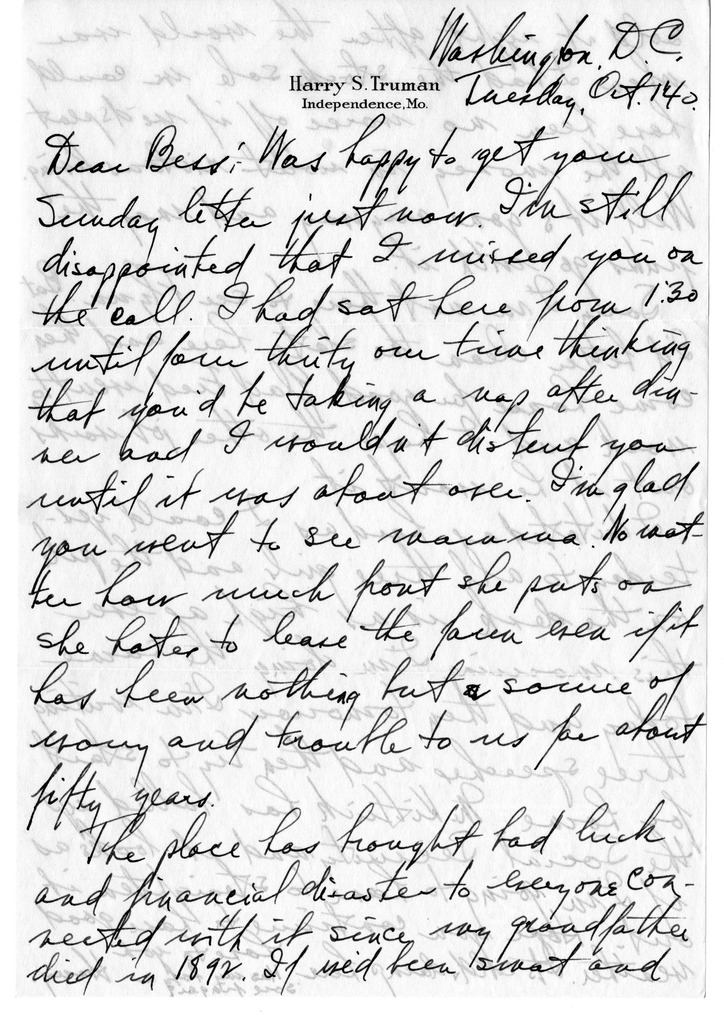 Washington, D.C.
Harry S. Truman
Independence, Mo.
Tuesday, Oct. 1 40.
Dear Bess:- Was happy to get your
Sunday letter just now. I'm still
disappointed that I missed you on
the call. I had sat here from 1:30
until four thirty our time thinking
that you'd be taking a nap after din-
ner and I wouldn't disturb you
until it was about over. I'm glad
you went to see mamma. No mat-
ter how much front she puts on
she hates to leave the farm even if it
has been nothing but a source of
worry and trouble to us for about
fifty years.
The place has brought bad luck
and financial disaster to everyone con-
nected with it since my grandfather
died in 1892. If we'd been smart and